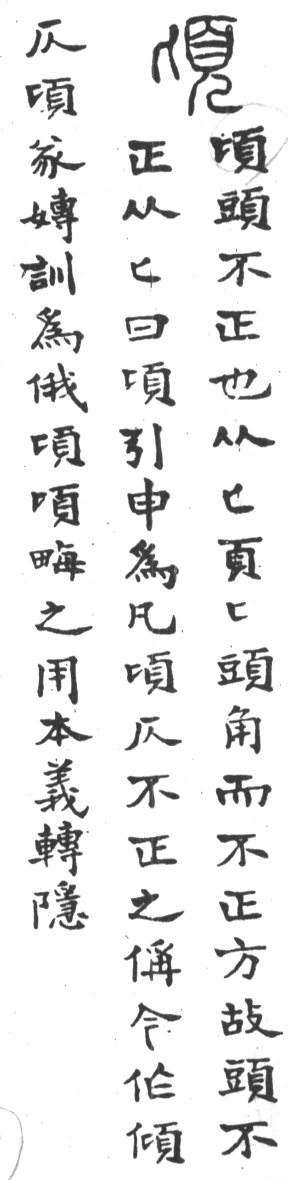 頃
頃頭不正也从匕頁匕頭角而不正方故頭不
正从匕曰頃引申爲凡頃仄不正之偁今作傾
仄頃家嫥訓爲俄頃頃畮之用本義轉隱